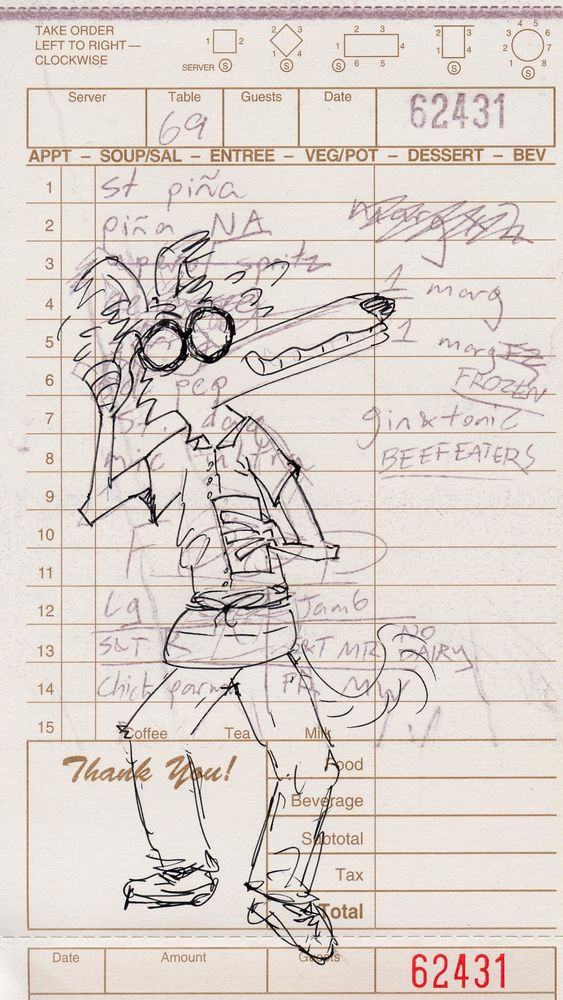 TAKE ORDER
LEFT TO RIGHT—
CLOCKWISE
1 2 S
SERVER S
2 3 1 4 S
2 3 1 4 S 6 5
2 3 1 4 S
4 5 3 6 2 7 1 8 S
Server Table Guests Date
69 62431
APPT – SOUP/SAL – ENTREE – VEG/POT – DESSERT – BEV
1 st piña
2 piña NA
3 aperol spritz
4 1 marg
5 1 marg
6 pep FROZEN
7 gin & tonic
8 mic ultra BEEFEATERS
9
10
11
12 Lg Jamb
13 S&T S&T MR NO DAIRY
14 Chick parm MW
15
Coffee Tea Milk
Thank You!
Food
Beverage
Subtotal
Tax
Total
Date Amount Guests
62431